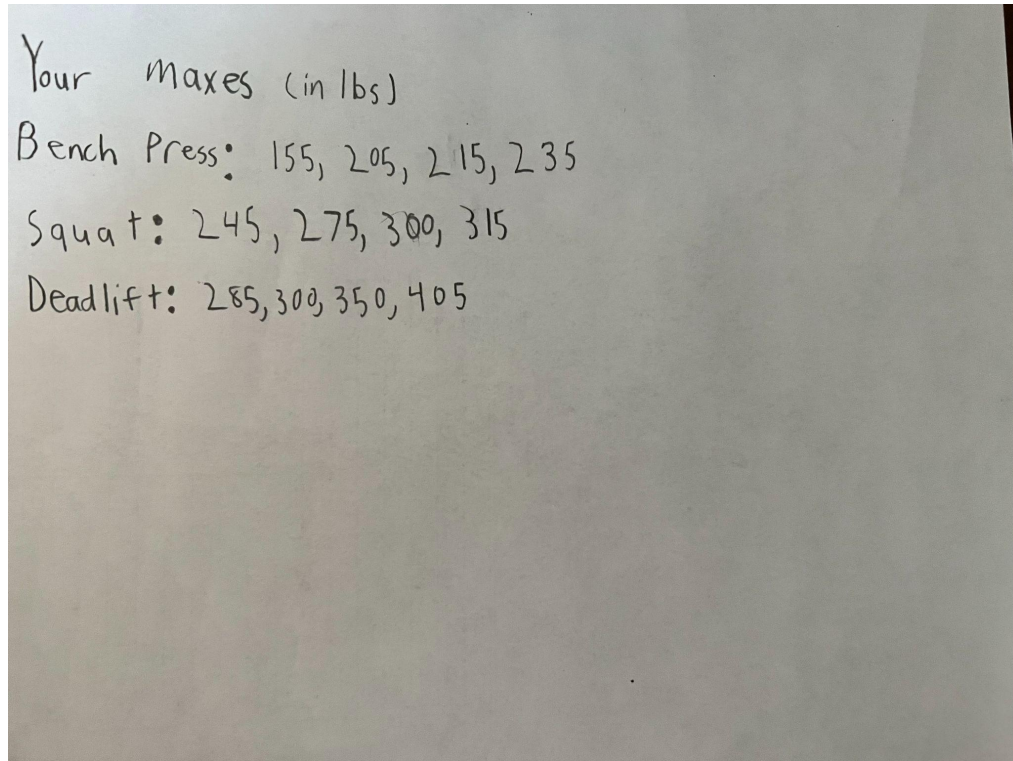 Your maxes (in lbs)
Bench Press: 155, 205, 215, 235
Squat: 245, 275, 300, 315
Deadlift: 285, 300, 350, 405